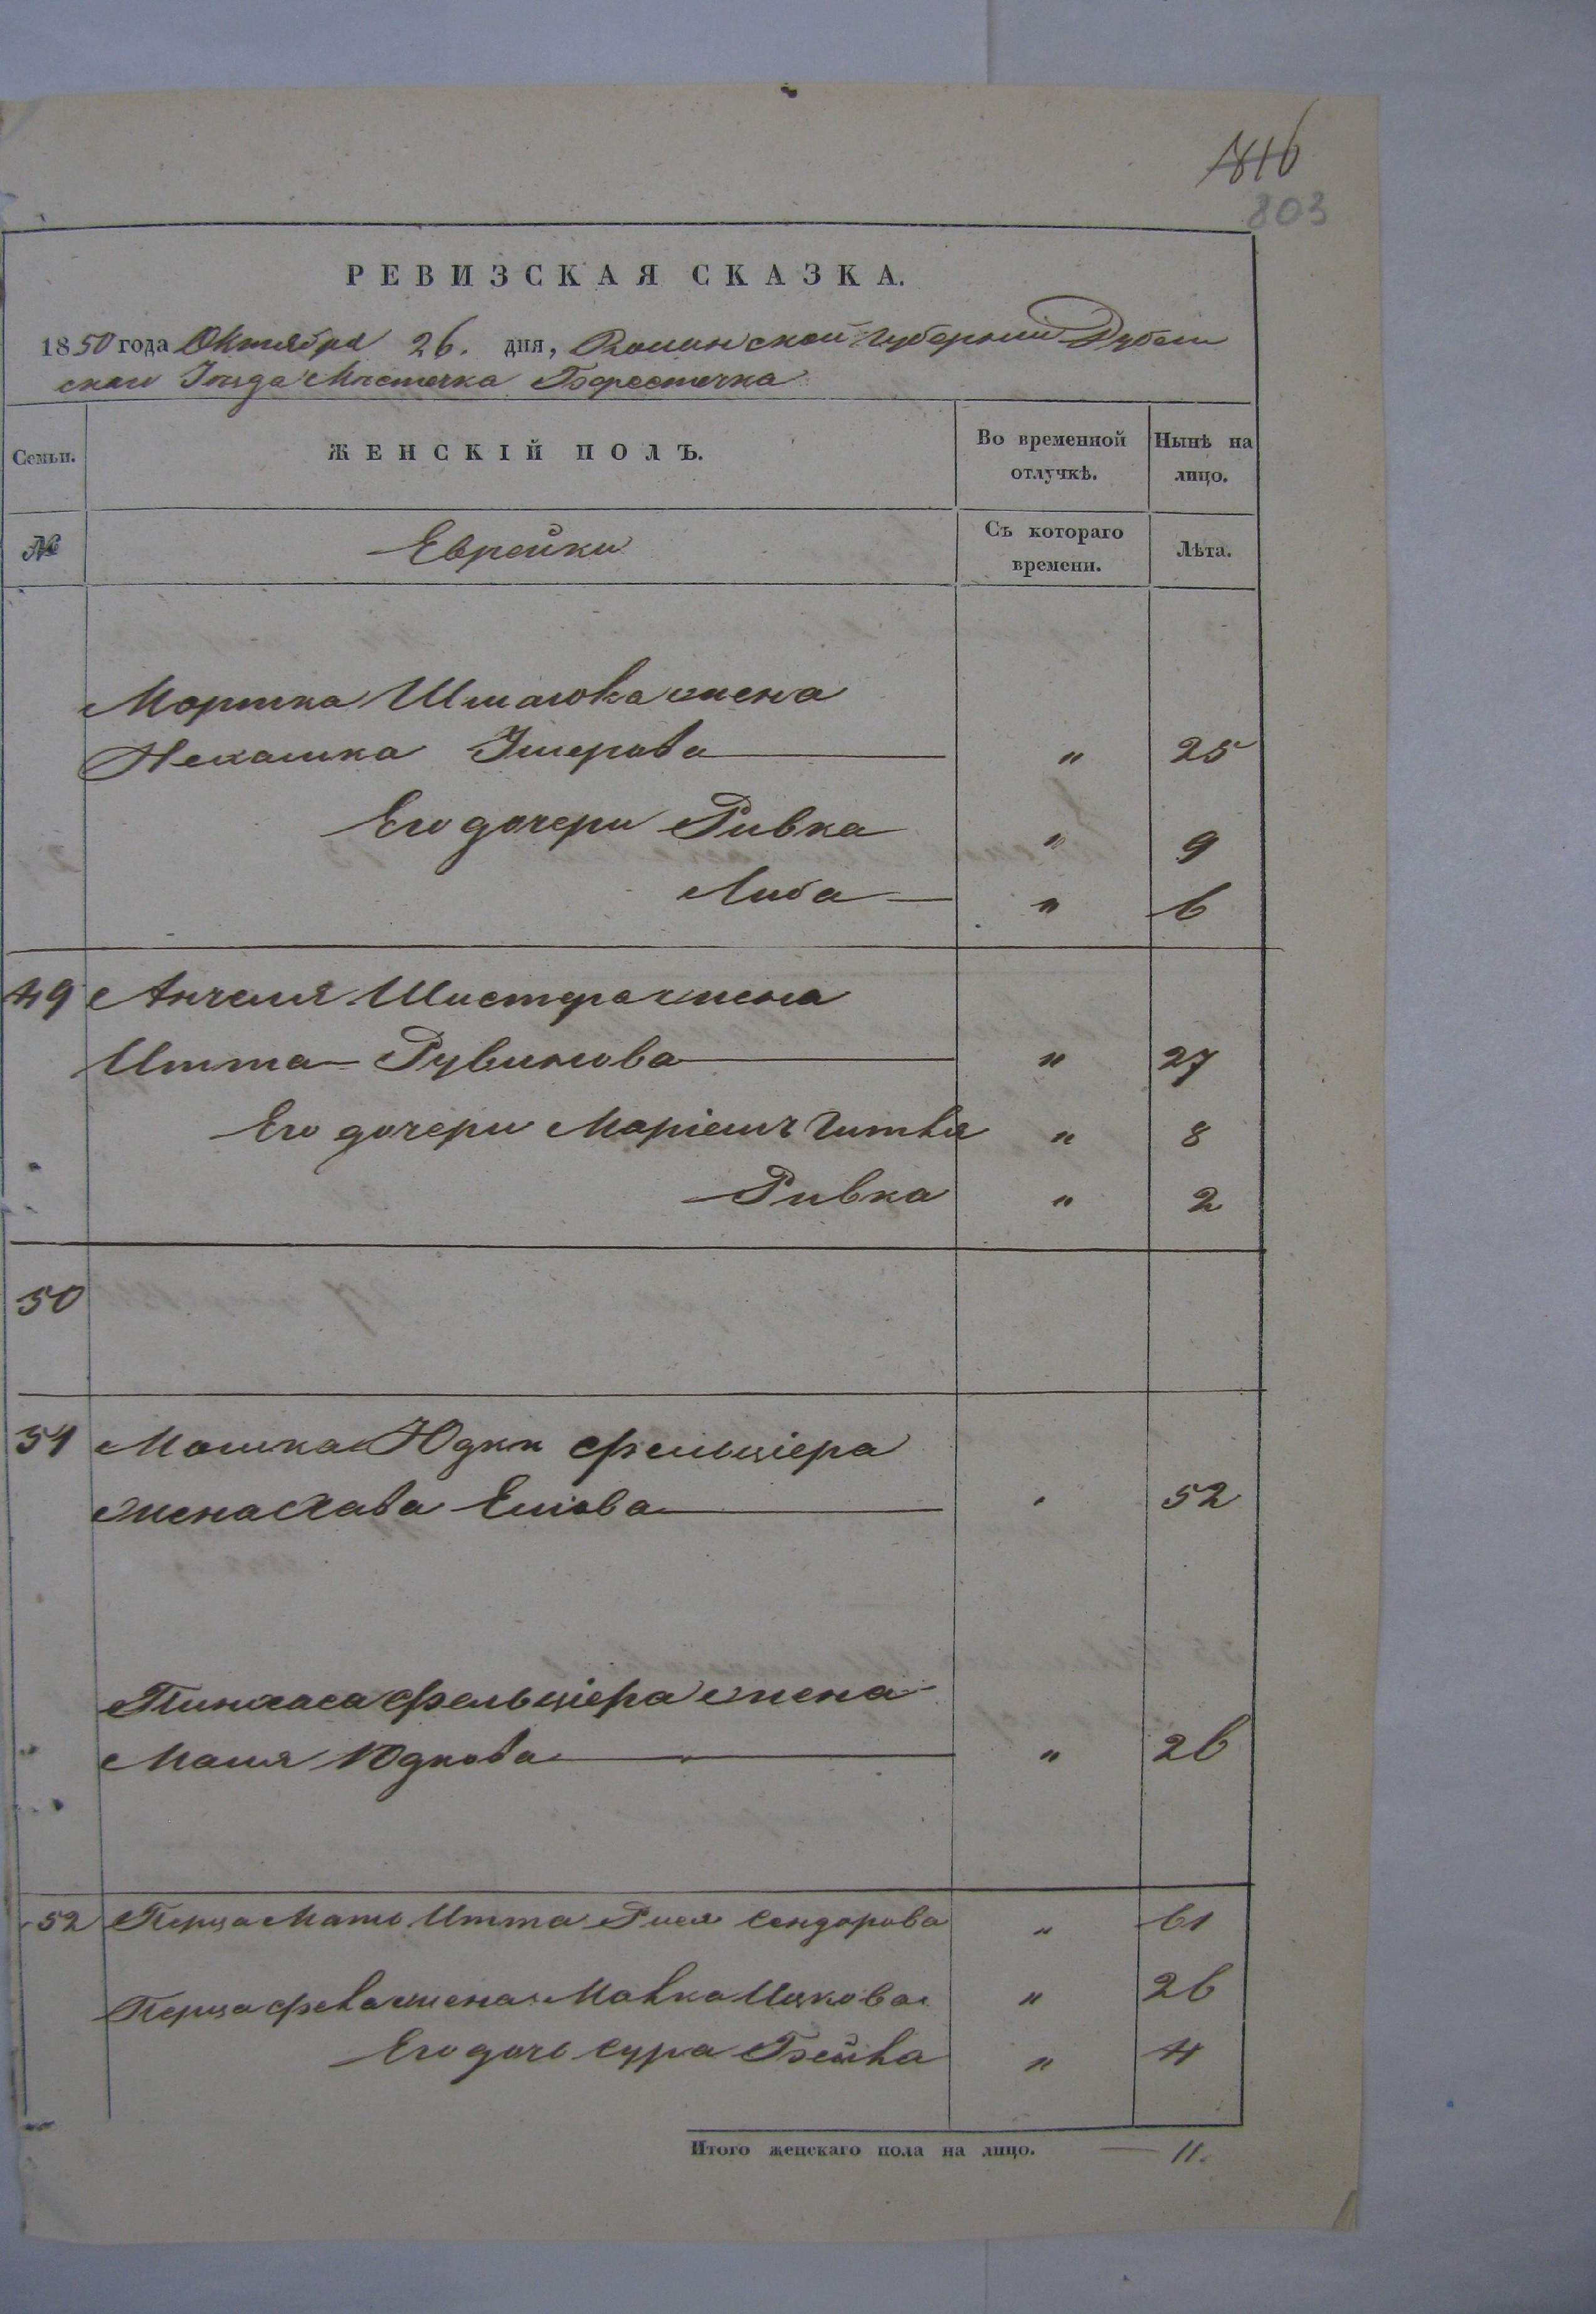 1816
803
РЕВИЗСКАЯ СКАЗКА.
1850 года Октября 26. дня, Волинской Губерніи Дубен
скаго Уезда Местечка Берестечка
Семьи. ЖЕНСКІЙ ПОЛЪ. Во временной отлучкѣ. Нынѣ на лицо.
№ Еврейки Съ котораго времени. Лѣта.
Мортка Шмаюка жена
Нехамка Умерова " 25
Его дочери Ривка " 9
Либа " 6
49 Анчеля Шистера жена
Итта Рувинова " 27
Его дочери Маріемъ Гитля " 8
Ривка " 2
50
51 Мошка Юдки Фельцера
жена Хава Еліова " 52
Пинхаса Фельціера жена
Маля Юдкова " 26
52 Перца Мать Итта Рися Сендорова " 61
Перца жена Малка Ицкова " 26
Его дочь Сура Бейла " 4
Итого женскаго пола на лицо. — 11.